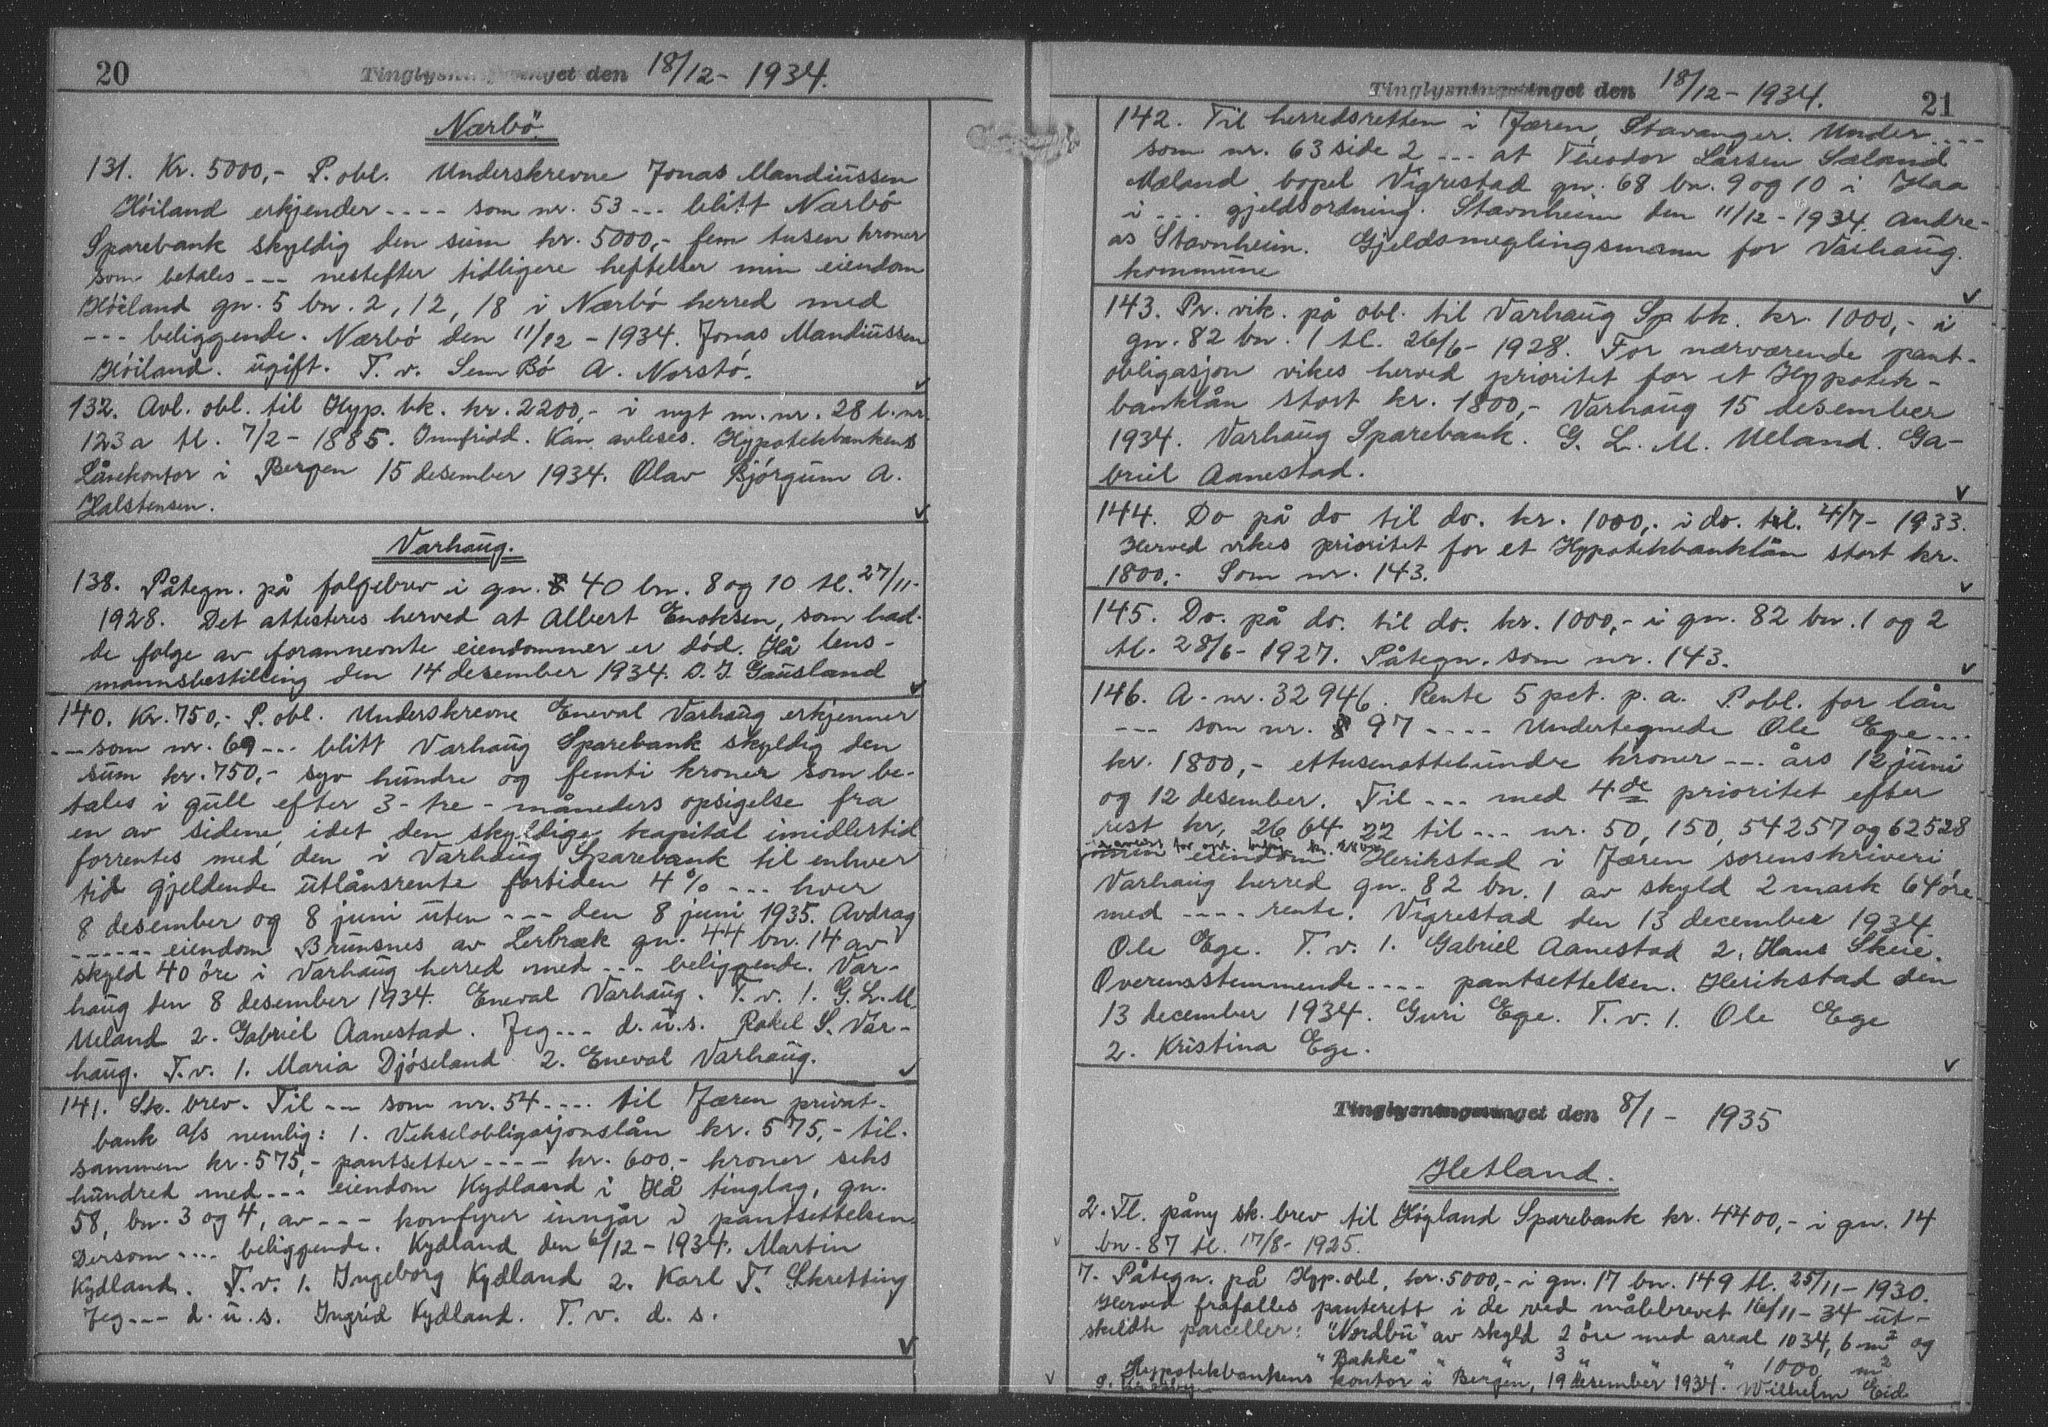 20
Tinglysningstinget den 18/12 - 1934.
Nærbö
131. Kr. 5000,- P. obl. Underskrevne Jonas Mandiussen
Höiland erkjender ---- som nr. 53 --- blitt Nærbö
Sparebank skyldig den sum kr. 5000,- fem tusen kroner
som betales --- nestefter tidligere heftelser min eiendom
Höiland gn. 5 bn. 2, 12, 18 i Nærbö herred med
--- beliggende. Nærbö den 11/12 - 1934. Jonas Mandiussen
Höiland. ugift. T. v. Sem Bö A. Norstö.
132. Avl. obl. til Hyp. bk. kr. 2200,- i nyt m. nr. 28 l. nr.
123a tl. 7/2 - 1885. Innfridd. Kan avleses. Hypotekbankens
Lånekontor i Bergen 15 desember 1934. Olav Bjórgum A.
Halstensen.
Varhaug.
138. Påtegn. på folgebrev i gn. 40 bn. 8 og 10 tl. 27/11-
1928. Det attesteres herved at Albert Enoksen, som had-
de folge av forannevnte eiendommer er död. Hå lens-
mannsbestilling den 14 desember 1934. D. J. Gausland
140. Kr. 750,- P. obl. Underskrevne Eneval Varhaug erkjenner
--- som nr. 69 --- blitt Varhaug Sparebank skyldig den
sum kr. 750,- syv hundre og femti kroner som be-
tales i gull efter 3 - tre - måneders opsigelse fra
en av sidene, idet den skyldige kapital imidlertid
forrentes med den i Varhaug Sparebank til enhver
tid gjeldende utlånsrente fortiden 4% --- hver
8 desember og 8 juni uten --- den 8 juni 1935. Avdrag
------ eiendom Brunsnes av Lerbræk gn. 44 bn. 14 av
skyld 40 öre i Varhaug herred med --- beliggende. Var-
haug den 8 desember 1934. Eneval Varhaug. T. v. 1. G. L. M.
Ueland 2. Gabriel Aanestad. Jeg --- d. u. s. Rakel S. Var-
haug. T. v. 1. Maria Djöseland 2. Eneval Varhaug.
141. Sk. brev. Til --- som nr. 54 ---- til Jæren privat-
bank a/s nemlig: 1. Vekselobligasjonslån kr. 575,- til-
sammen kr. 575,- pantsetter ---- kr. 600,- kroner seks
hundred med --- eiendom Kydland i Hå tinglag, gn.
58, bn. 3 og 4, av --- komfyrer inngår i pantsettelsen.
Dersom ---- beliggende. Kydland den 6/12 - 1934. Martin
Kydland. T. v. 1. Ingeborg Kydland 2. Karl T. Skretting
Jeg --- d. u. s. Ingrid Kydland. T. v. d. s.
Tinglysningstinget den 18/12 - 1934.
21
142. Til herredsretten i Jæren, Stavanger. Under ----
som nr. 63 side 2 --- at Theodor Larsen Sæland
Mæland, bopel Vigrestad gn. 68 bn. 9 og 10 i Haa
i --- gjeldsordning. Stavnheim den 11/12 - 1934. Andre-
as Stavnheim. Gjeldsmeglingsmann for Varhaug
kommune
143. Pr. vik. på obl. til Varhaug Sp bk. kr. 1000,- i
gn. 82 bn. 1 tl. 26/6 - 1928. For nærværende pant-
obligasjon vikes herved prioritet for et Hypotek-
banklån stort kr. 1800,- Varhaug 15 desember
1934. Varhaug Sparebank. G. L. M. Ueland. Ga-
briel Aanestad.
144. Do på do til do. kr. 1000,- i do. tl. 4/7 - 1933.
Herved vikes prioritet for et Hypotekbanklån stort kr.
1800,- Som nr. 143.
145. Do. på do. til do. kr. 1000,- i gn. 82 bn. 1 og 2
tl. 28/6 - 1927. Påtegn. som nr. 143.
146. A. nr. 32946. Rente 5 pct. p. a. P. obl. for lån
--- som nr. 97 ---- Undertegnede Ole Ege ---
kr. 1800,- ettusenottehundre kroner --- års 12 juni
og 12 desember. Til --- med 4de prioritet efter
rest kr. 2664,22 til --- nr. 50, 150, 54257 og 62528
min eiendom Herikstad i Jæren sorenskriveri
Varhaug herred gn. 82 bn. 1 av skyld 2 mark 64 öre
med ---- rente. Vigrestad den 13 december 1934.
Ole Ege. T. v. 1. Gabriel Aanestad 2. Hans Skeie.
Overensstemmende ---- pantsettelsen. Herikstad den
13 december 1934. Guri Ege. T. v. 1. Ole Ege
2. Kristina Ege.
Tinglysningstinget den 8/1 - 1935
Hetland.
2. Tl. påny sk. brev til Högland Sparebank kr. 4400,- i gn. 14
bn. 87 tl. 17/8 - 1925.
7. Påtegn. på Hyp. obl. kr. 5000,- i gn. 17 bn. 149 tl. 25/11 - 1930.
Herved frafalles panterett i de ved målebrevet 16/11 - 34 ut-
skildte parceller: "Nordbu" av skyld 2 öre med areal 1034,6 m² og
"Bakke" " " 3 " " " 1000 m²
Hypotekbankens kontor i Bergen, 19 desember 1934. Wilhelm Eid
9.